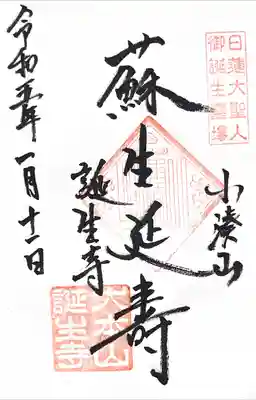 日蓮大聖人
御誕生霊場
小湊山
蘇生延寿
誕生寺
大本山
誕生寺
令和五年
一月十一日